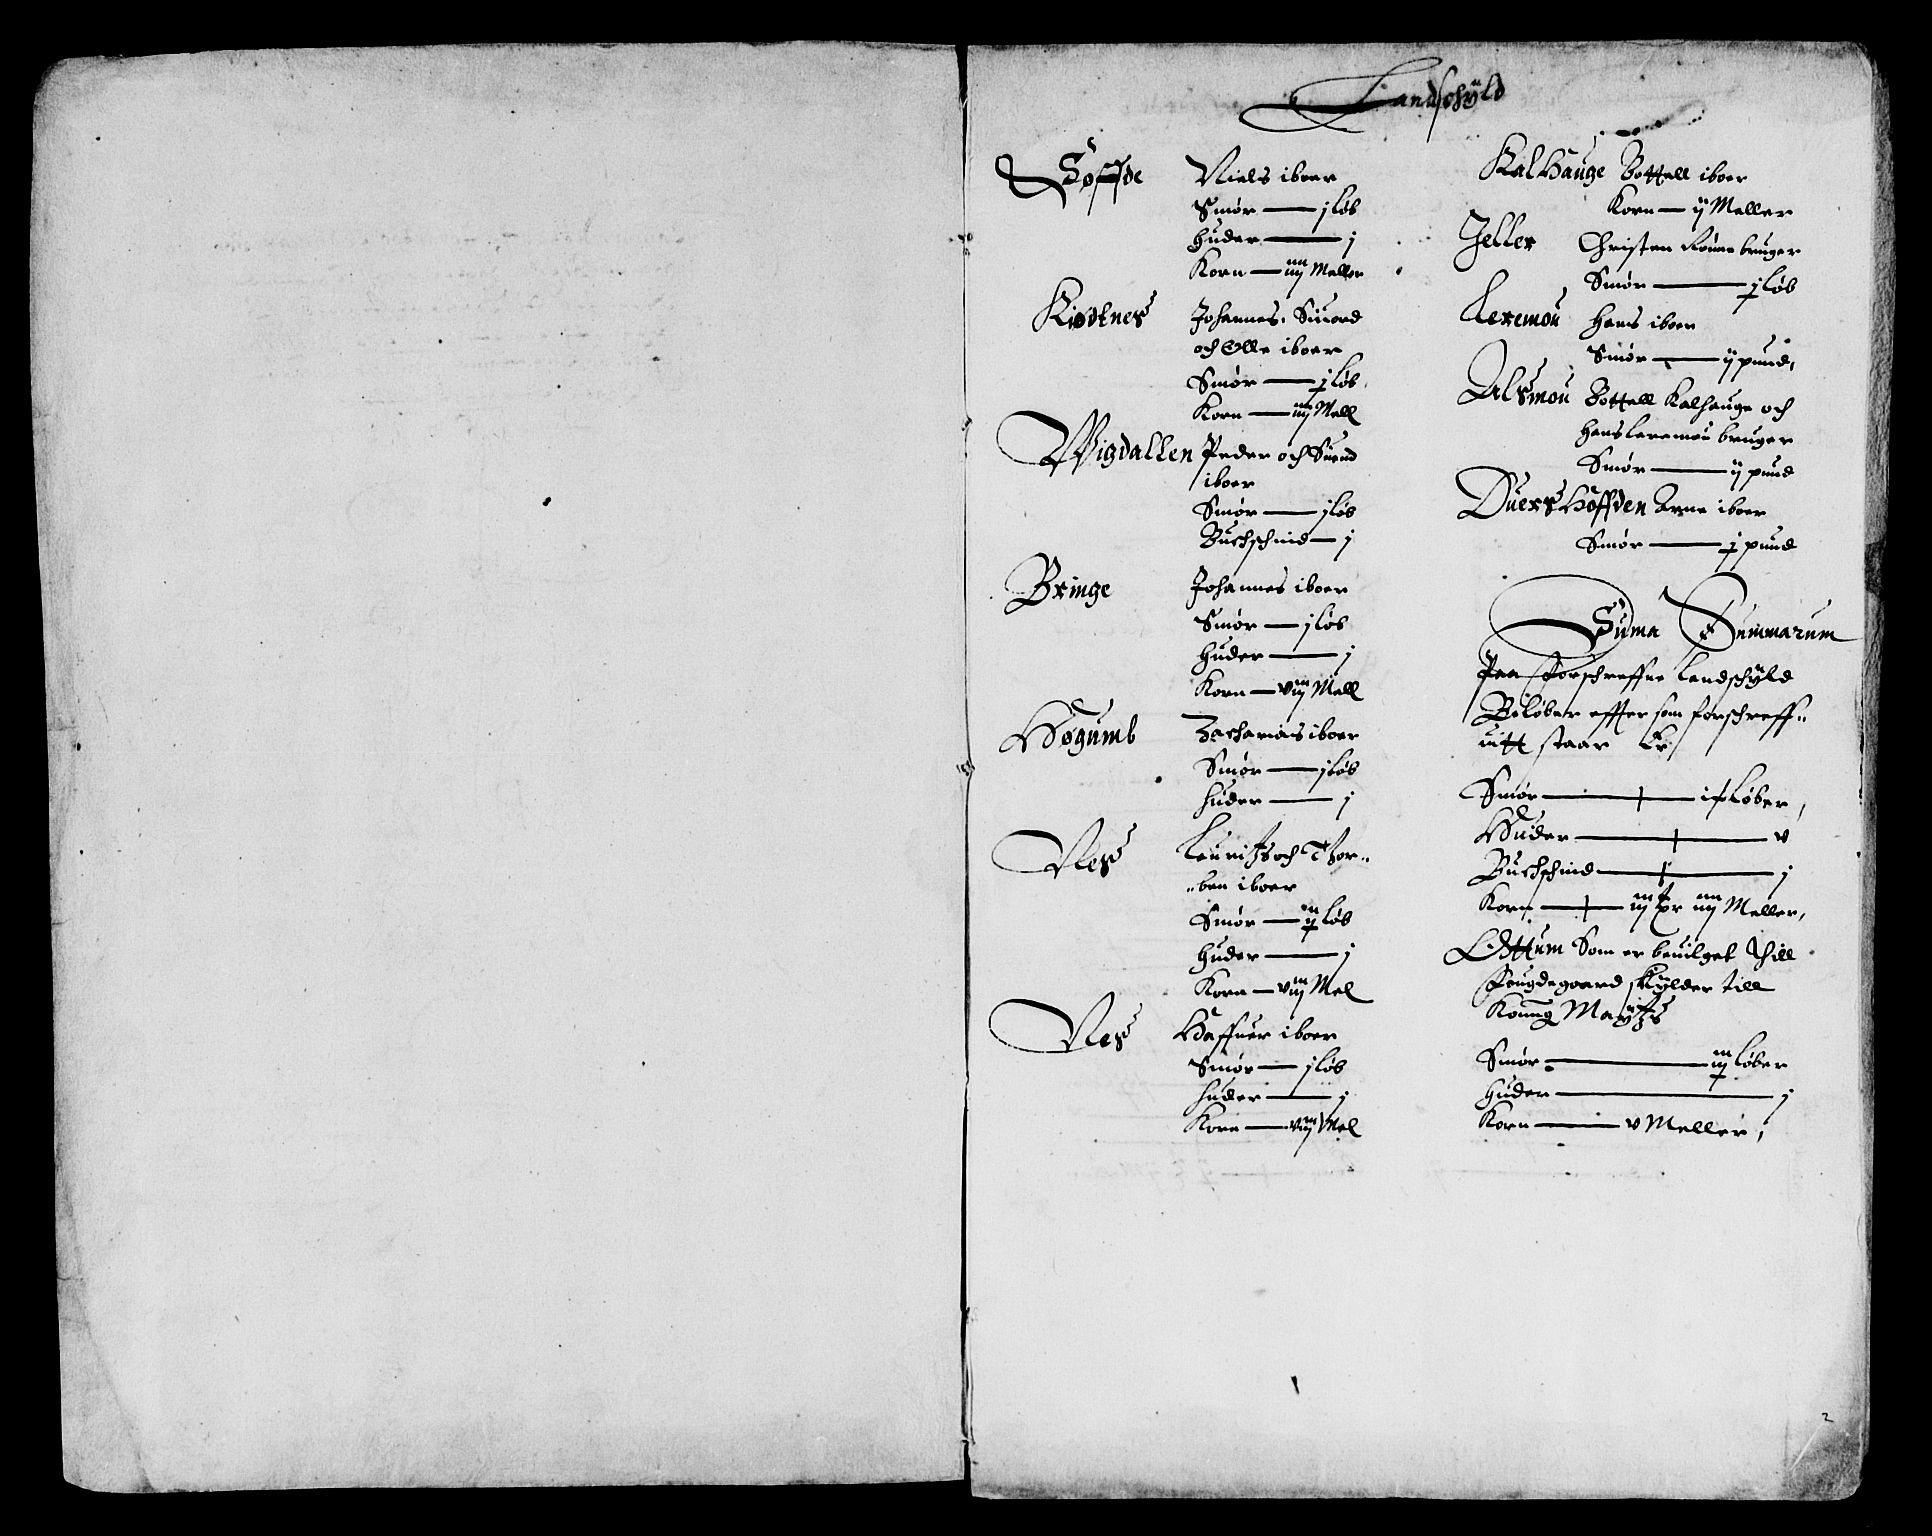 Landschÿld
Søffde Niels iboer
Smør — j løb
Huder — j
Korn — iiij Meller
Kiødtnes Johannes, Siuord
och Olle iboer
Smør — j løb
Korn — iiij Mell
Wigdallen Peder och Suend
iboer
Smør — j løb
Buchschind — j
Bringe Johannes iboer
Smør — j løb
Huder — j
Korn — viij Mell
Høgumb Zacharias iboer
Smør — j løb
Huder — j
Nes Lauritz och Thor„
„ben iboer
Smør — ij løb
Huder — j
Korn — viij Mel
Nes Haffuer iboer
Smør — j løb
Huder — j
Korn — viij Mel
Kalhauge Bottell iboer
Korn — ij Meller
Jeller Christen bruger
Smør — j løb
Leremou Hans iboer
Smør — ij pund,
Alsmou Bottell Kalhauge och
Hans Leremou bruger
Smør — ij pund
Duershøffden Arne iboer
Smør — j pund
Suma Summarum
Paa forschreffne Landschÿld
Beløber effter som forschreff„
uitt staar Er
Smør — løber,
Huder — v
Buchschind — j
Korn — iij iiij Meller,
Ottum Som er beuilget thill
Fougdegaard skÿlder till
Konng Maÿtz
Smør — iij løber
Huder — j
Korn — v Meller,
2